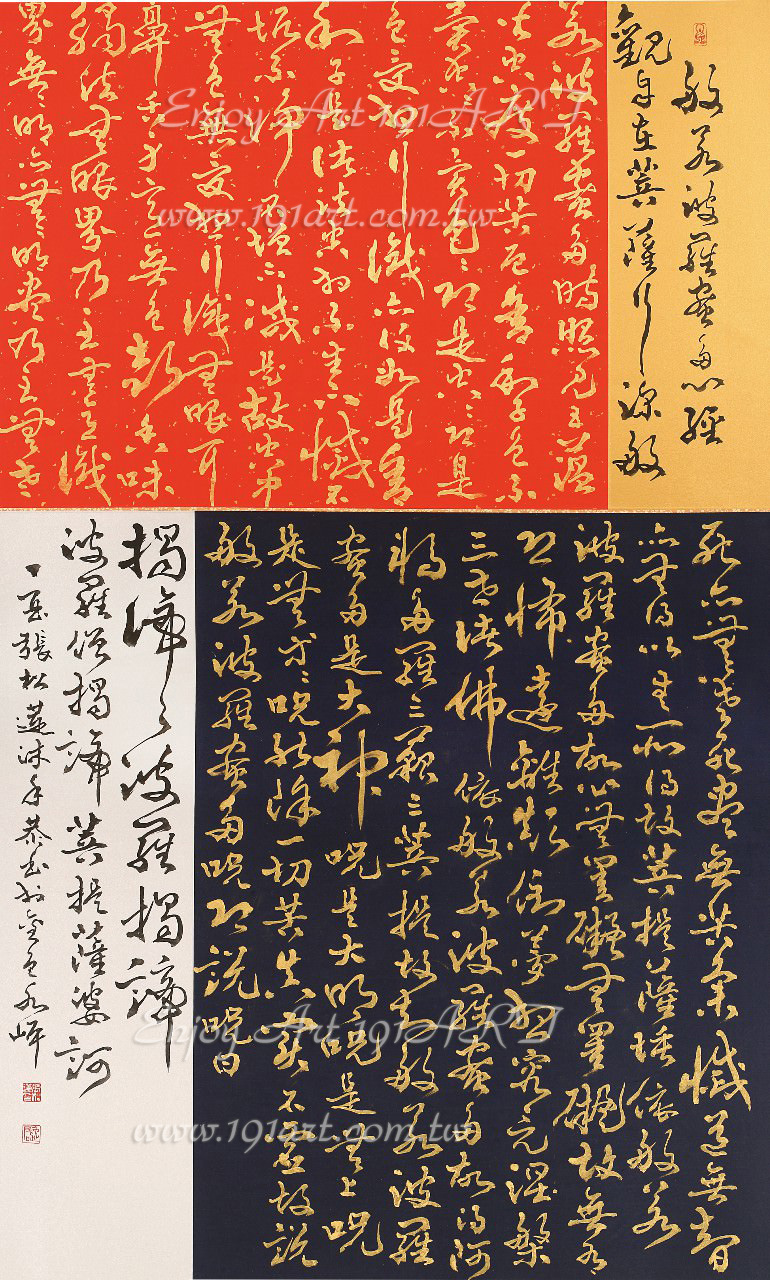 般若波羅蜜多心經
觀自在菩薩行深般
若波羅蜜多時照見五蘊
皆空度一切苦厄舍利子色不
異空空不異色色即是空空即是
色受想行識亦復如是舍
利子是諸法空相不生不滅不
垢不淨不增不減是故空中
無色無受想行識無眼耳
鼻舌身意無色聲香味
觸法無眼界乃至無意識
界無無明亦無無明盡乃至無老
死亦無老死盡無苦集滅道無智
亦無得以無所得故菩提薩埵依般若
波羅蜜多故心無罣礙無罣礙故無有
恐怖遠離顛倒夢想究竟涅槃
三世諸佛依般若波羅蜜多故得阿
耨多羅三藐三菩提故知般若波羅
蜜多是大神咒是大明咒是無上咒
是無等等咒能除一切苦真實不虛故說
般若波羅蜜多咒即說咒曰
揭諦々波羅揭諦
波羅僧揭諦菩提薩婆訶
丁亥張松蓮沐手恭書於金色水岸
Enjoy Art 191ART
www.191art.com.tw
Enjoy Art 191ART
www.191art.com.tw